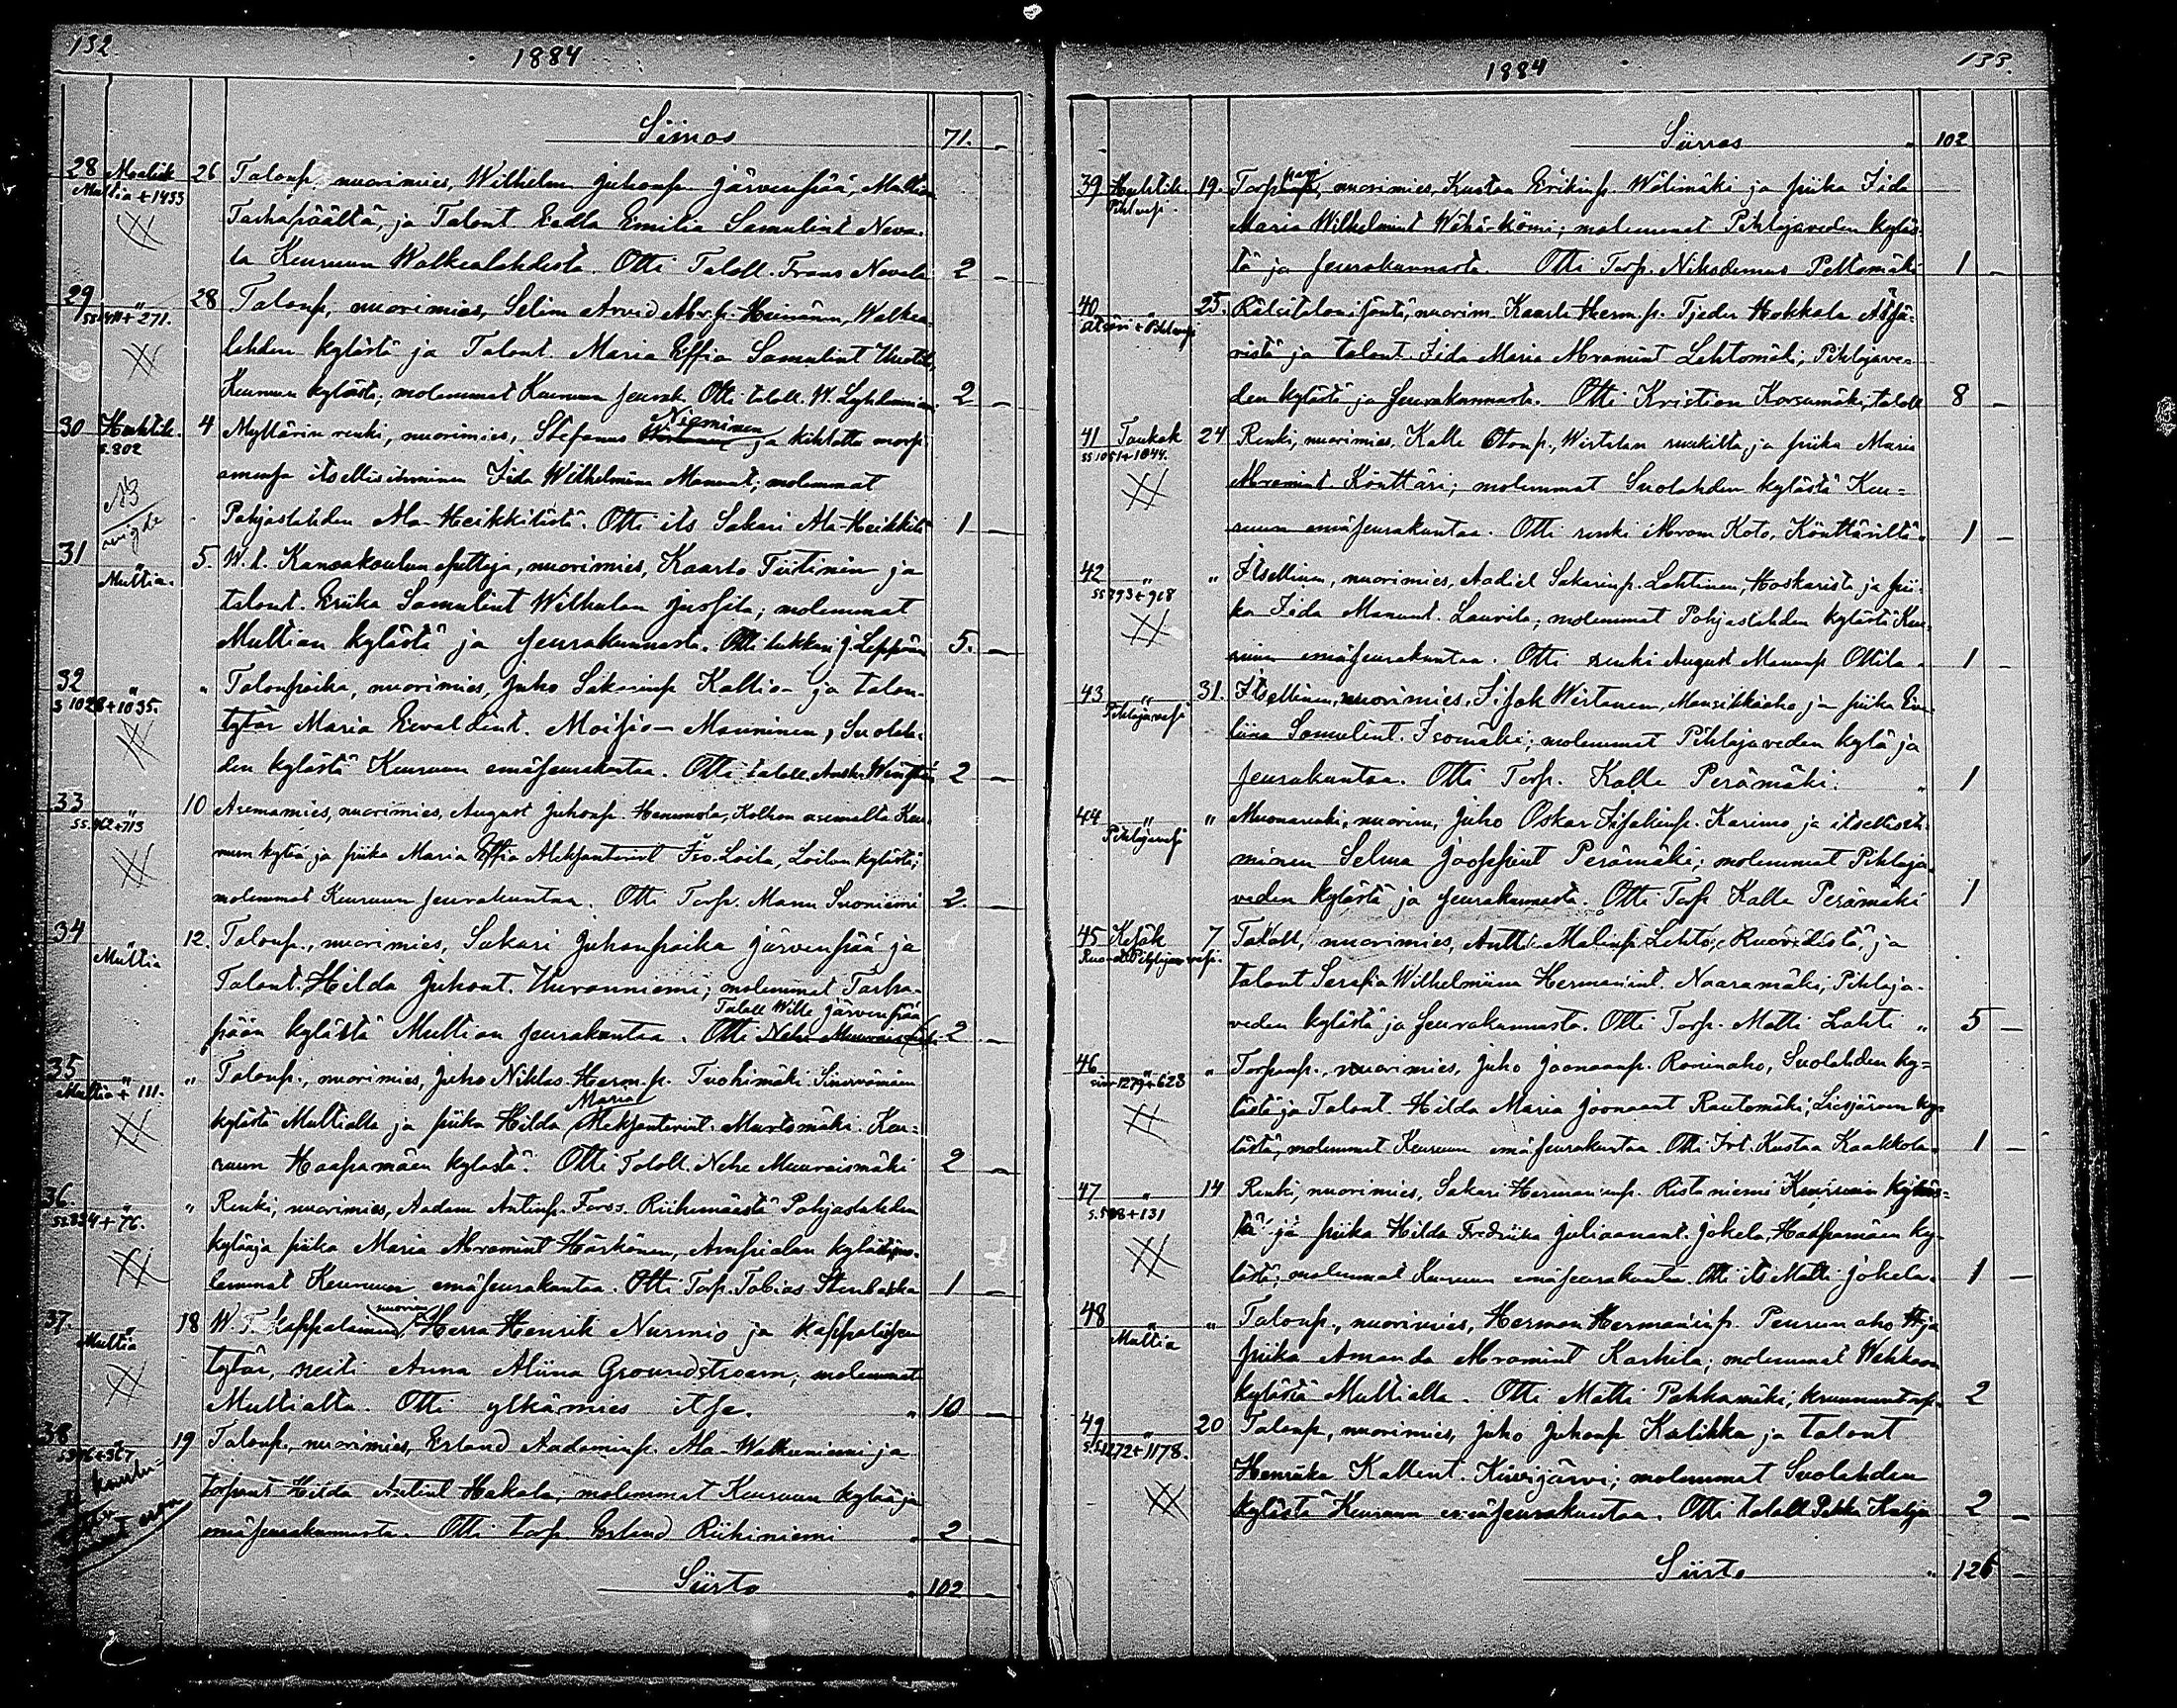 132.
1884
Siirros 71. –
28 Maalisk 26 Talonp. nuorimies, Wilhelm Juhonp. Järvenpää, Multian
Multia + 1453
Tarhapäältä, ja Talont. Eedla Emilia Samulint Neva-
la Keuruun Walkealahdesta. Otti Taloll. Frans Nevala 2 –
29 " 28 Talonp, nuorimies, Selim Arvid Abr.p. Heinänen, Walkea-
271.
lahden kylästä ja Talont. Maria Effia Samulint
Keuruun kylästä; molemmat Keuruun seurak. Otti taloll. W. 2 –
30 Huhtik. 4 Myllärin renki, nuorimies, Stefanus Nieminen ja kihlattu morsi-
s. 802
amensa itsellisihminen Iida Wilhelmina Manunt; molemmat
N3
Pohjaslahden Ala-Heikkilästä. Otti its Sakari Ala-Heikkilä 1 –
31 5 W.t. Kansakoulun opettaja, nuorimies, Kaarlo Tiitinen ja
Multia.
talont. Eriika Samulint Wilhulan Jussila; molemmat
Multian kylästä ja seurakunnasta. Otti lukkari J. Leppänen 5. –
32 " " Talonpoika, nuorimies, Juho Sakarinp Kallio- ja talon-
s 1028 + 1035.
tytär Maria Eevaldint. Moisio-Manninen, Suolah-
den kylästä Keuruun emäseurakuntaa. Otti taloll. 2 –
33 " 10 Asemamies, nuorimies, August Juhonp. Kolhon asemalta Keu-
ss. 462+713
ruun kylää ja piika Maria Effia Aleksanterint Iso-Loila, Loilan kylästä;
molemmat Keuruun seurakuntaa. Otti Torp. Manu Suoniemi 2. –
34 12. Talonp., nuorimies, Sakari Juhonpoika Järvenpää ja
Multia
Talont. Hilda Juhont. Huranniemi; molemmat Tarha-
Taloll Wille Järvenpää
pään kylästä Multian seurakuntaa. Otti Nehe 2 –
35 " " Talonp., nuorimies, Juho Niklas Herm.p. Tuohimäki Sinervämäen
Multia + 111.
Maria
kylästä Multialla ja piika Hilda Aleksanterint. Murtomäki Keu-
ruun Haapamäen kylästä. Otti Taloll. Nehe Muuraismäki 2 –
36 " " Renki, nuorimies, Aadam Antinp. Forss. Riihimäestä Pohjaslahden
ss. 894 + 76.
kylää ja piika Maria Abramint Härkönen, Ampialan kylästä, mo-
lemmat Keuruun emäseurakuntaa. Otti Torp. Tobias Stenbakka 1 –
37. " 18 W. T. Kappalainen, nuorim Herra Henrik Nurmio ja kappalaisen
Multia
tytär, neiti Anna Aliina Groundstroem; molemmat
Multialta. Otti ylkämies itse. " 10 –
38 " 19 Talonp., nuorimies, Erland Aadaminp. Ala-Walkeeniemi ja
torpant Hilda Antint Hakala; molemmat Keuruun kylää ja
emäseurakunnasta. Otti torp. Erland Riihiniemi " 2 –
Siirto " 102 –
133.
1884
Siirros " 102
39 Huhtik 19. Torpanp, nuorimies, Kustaa Erikinp. Wälimäki ja piika Iida
Pihlavesi.
Maria Wilhelmint Wähä-Kömi; molemmat Pihlajaveden kyläs-
tä ja seurakunnasta. Otti Torp. Nikodemus Peltomäki 1 –
40 " 25. Rälsitalonisäntä, nuorim. Kaarle Herm.p. Tjeder Hokkala Ätsä-
ristä ja talont. Iida Maria Abramint Lehtomäki; Pihlajave-
den kylästä ja seurakunnasta. Otti Kristian Korsumäki, taloll 8 –
41 Toukok 24 Renki, nuorimies, Kalle Otonp., Wirtalan ruukilta, ja piika Maria
ss 1051+1044.
Abramint. Könttäri; molemmat Suolahden kylästä Keu-
ruun emäseurakuntaa. Otti renki Abram Koto, Könttäriltä " 1 –
42 " " Itsellinen, nuorimies, Aadiel Sakarinp. Lahtinen, Hoskarista ja pii-
ss 793+918
ka Iida Manunt. Laurila; molemmat Pohjaslahden kylästä Keu-
ruun emäseurakuntaa. Otti renki August Manunp Ottila " 1 –
43 " 31. Itsellinen, nuorimies, Iisak Wirtanen, Mansikkaaho ja piika Eve-
Pihlajavesi
liina Samulint. Isomäki; molemmat Pihlajaveden kylä ja
seurakuntaa. Otti Torp. Kalle Perämäki. " 1
44 " " Muonarenki, nuorim, Juho Oskar Iisakinp. Karimo ja itsellisih-
Pihlajavesi
minen Selma Jooseppint Perämäki; molemmat Pihlaja-
veden kylästä ja seurakunnasta. Otti Torp Kalle Perämäki 1
45 Kesäk 7 Taloll, nuorimies, Antti Matinp. Lehto, Ruovedestä, ja
talont Serafia Wilhelmiina Hermanint. Naaramäki, Pihlaja-
veden kylästä ja seurakunnasta. Otti Torp. Matti Lahti " 5 –
46 " " Torpanp., nuorimies, Juho Joonaanp. Roninaho, Suolahden ky-
1279+623
lästä ja Talont. Hilda Maria Joonaant Rautomäki; Liesjärven ky-
lästä, molemmat Keuruun emäseurakuntaa. Otti Irt. Kustaa Kaakkola " 1 –
47 " 14 Renki, nuorimies, Sakari Hermaninp. Ristaniemi Keuruun kyläs-
s. 508+131
tä ja piika Hilda Fredriika Juliaanant. Jokela, Haapamäen ky-
lästä; molemmat Keuruun emäseurakuntaa. Otti its Matti Jokela " 1 –
48 " " Talonp., nuorimies, Herman Hermaninp. Peurunaho ja
Multia
piika Amanda Abramint Karhila; molemmat Wehkoon
kylästä Multialla. Otti Matti Pohkamäki; kruununtorp. 2
49 " 20 Talonp, nuorimies, Juho Juhonp Kalikka ja talont
ss. 1272+1178.
Henriika Kallent. Kiwijärvi; molemmat Suolahden
kylästä Keuruun emäseurakuntaa. Otti taloll Pekka 2 –
Siirto " 126 –